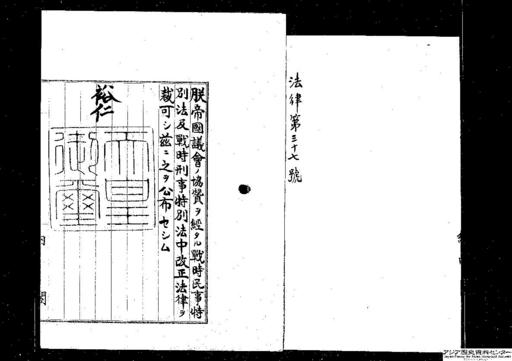 法律第三十七號
朕帝國議會ノ協贊ヲ經タル戰時民事特
別法及戰時刑事特別法中改正法律ヲ
裁可シ茲ニ之ヲ公布セシム
裕仁
天皇
御璽
內
閣
アジア歴史資料センター